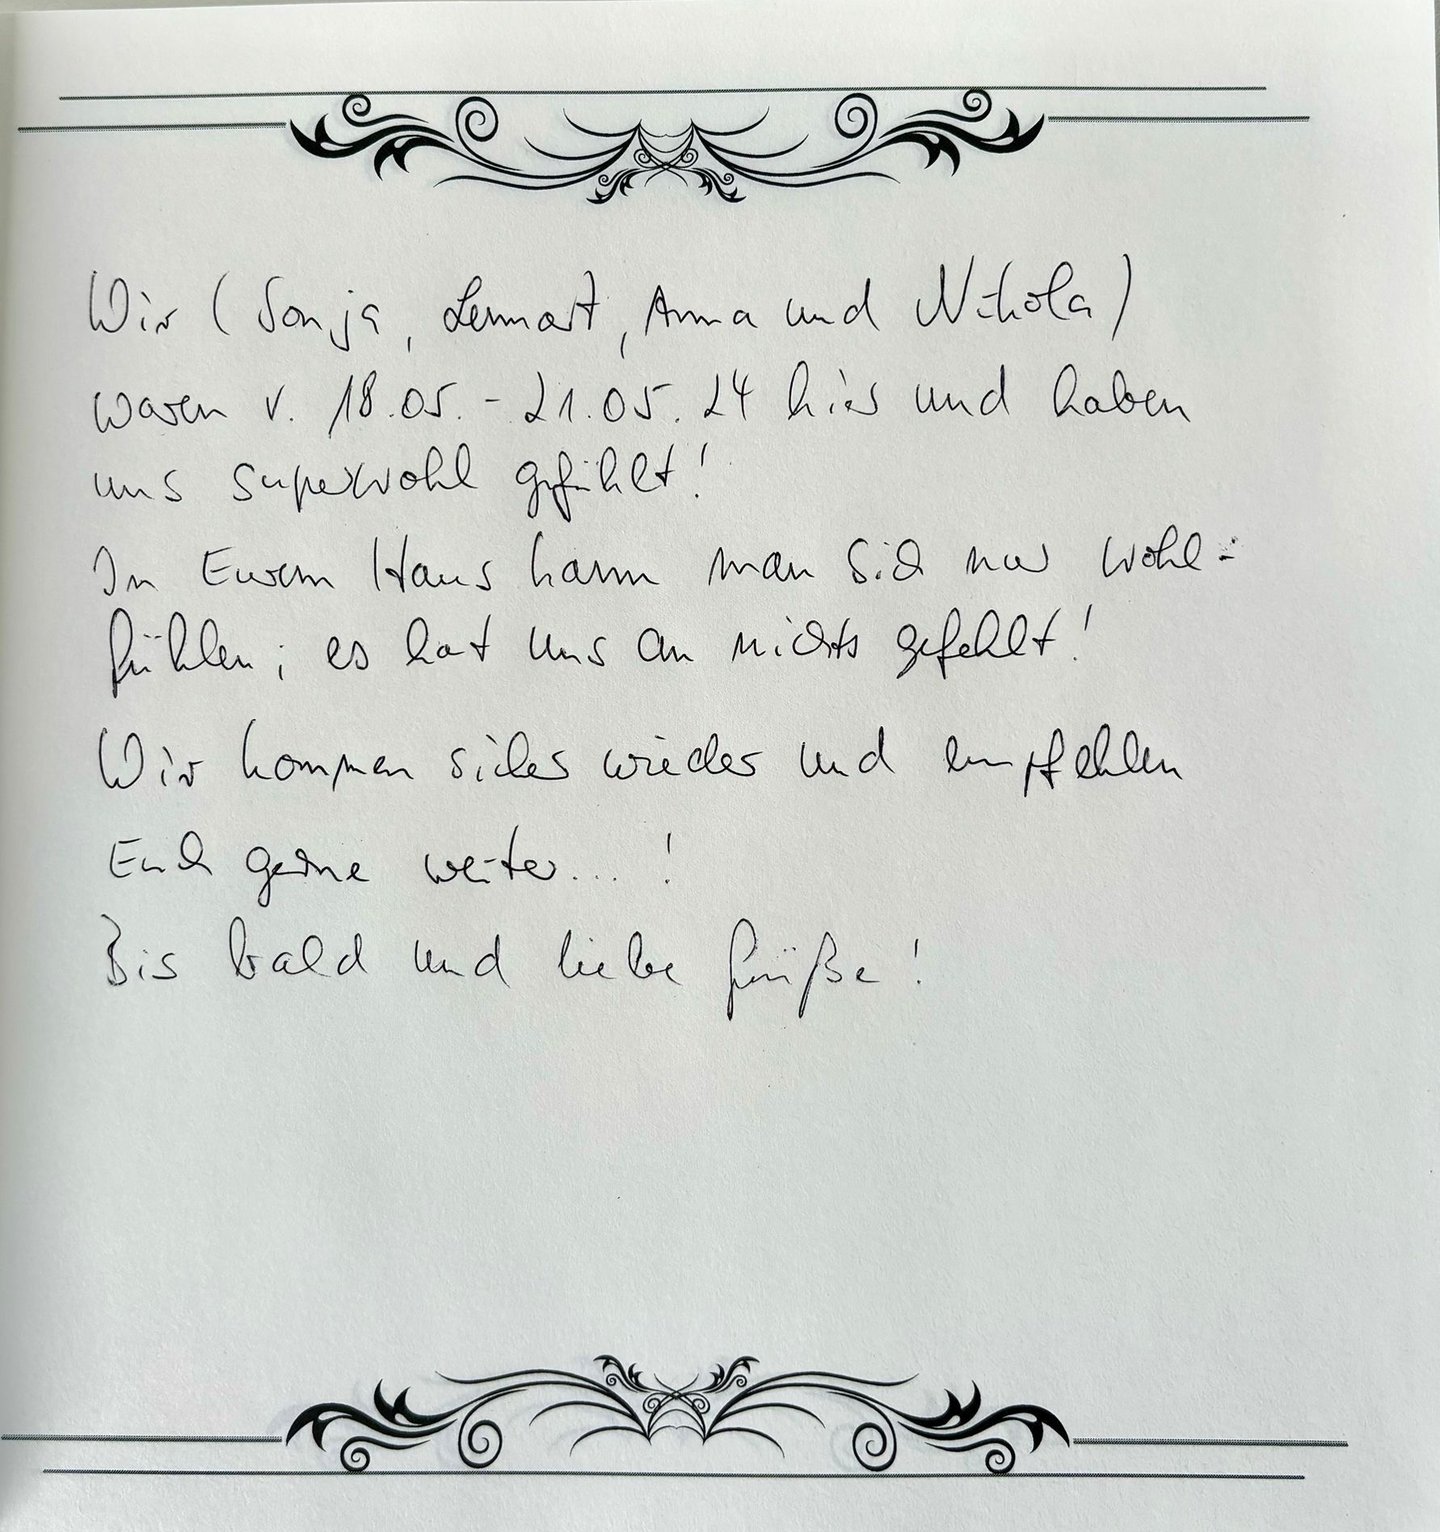 Wir (Sonja, Lennart, Anna und Nikola)
waren v. 18.05. - 21.05.24 hier und haben
uns superwohl gefühlt!
In Eurem Haus kann man sich nur wohl-
fühlen; es hat uns an nichts gefehlt!
Wir kommen sicher wieder und empfehlen
Euch gerne weiter...!
Bis bald und liebe Grüße!